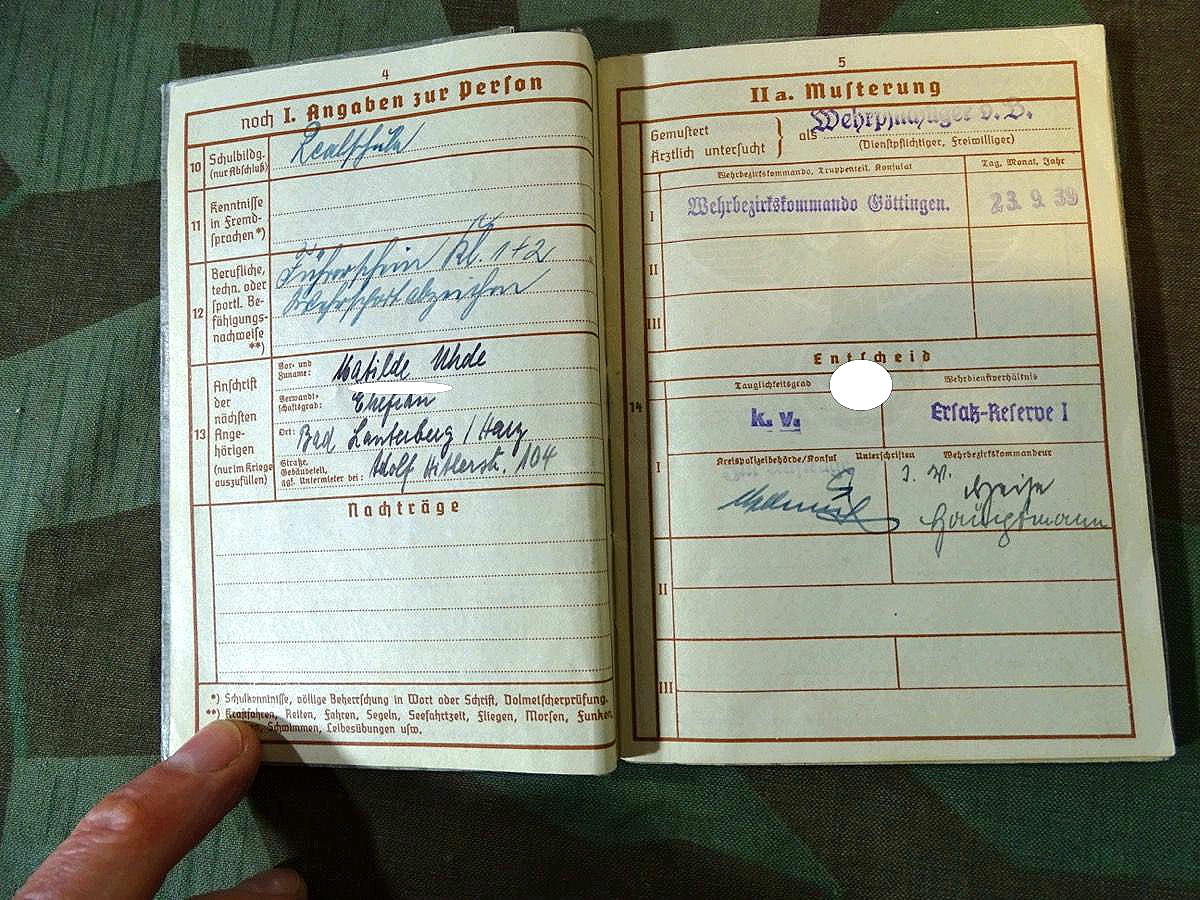 4
noch I. Angaben zur Person
10
Schulbildg.
(nur Abschluß)
Realschule
11
Kenntnisse
in Fremd-
sprachen*)
12
Berufliche,
techn. oder
sportl. Be-
fähigungs-
nachweise
**)
Führerschein Kl. 1+2
Wehrsportabzeichen
13
Anschrift
der
nächsten
Ange-
hörigen
(nur im Kriege
auszufüllen)
Vor- und
Zuname:
Matilde Uhde
Verwandt-
schaftsgrad:
Ehefrau
Ort:
Bad Lauterberg / Harz
Straße,
Gebäudeteil,
ggf. Untermieter bei:
Adolf Hitlerstr. 104
Nachträge
*) Schulkenntnisse, völlige Beherrschung in Wort oder Schrift, Dolmetscherprüfung.
**) Kraftfahren, Reiten, Fahren, Segeln, Seefahrtzeit, Fliegen, Morsen, Funken,
Schwimmen, Leibesübungen usw.
5
II a. Musterung
Gemustert
Ärztlich untersucht
} als Wehrpflichtiger d. B.
(Dienstpflichtiger, Freiwilliger)
Wehrbezirkskommando, Truppenteil, Konsulat
Tag, Monat, Jahr
I
Wehrbezirkskommando Göttingen.
23. 9. 39
II
III
Entscheid
14
Tauglichkeitsgrad
Wehrdienstverhältnis
k. v.
Ersatz-Reserve I
I
Kreispolizeibehörde/Konsul
Unterschriften
Wehrbezirkskommandeur
J. V.
Hauptmann
II
III